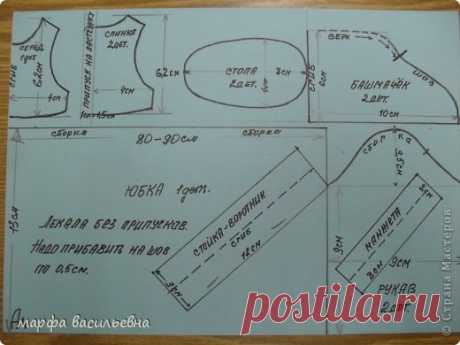 ПЕРЕД
1дет
СГИБ
6,2см
4см
ПРИПУСК НА ЗАСТЁЖКУ
СПИНКА
2дет.
4см
1см
1,5см
6,2см
СТОПА
2дет.
3см
СГИБ
6см
ВЕРХ
ШОВ
БАШМАЧОК
2дет.
10см
сборка
80-90см
сборка
13см
ЮБКА 1дет.
ЛЕКАЛА БЕЗ ПРИПУСКОВ.
НАДО ПРИБАВИТЬ НА ШОВ
ПО 0,5см.
СТОЙКА-ВОРОТНИК
СГИБ
12см
3см
сборка
2,5см
9см
МАНЖЕТА
3см
8см
9см
РУКАВ
2дет.
марфа васильевна
© Страна Мастеров
postila.ru